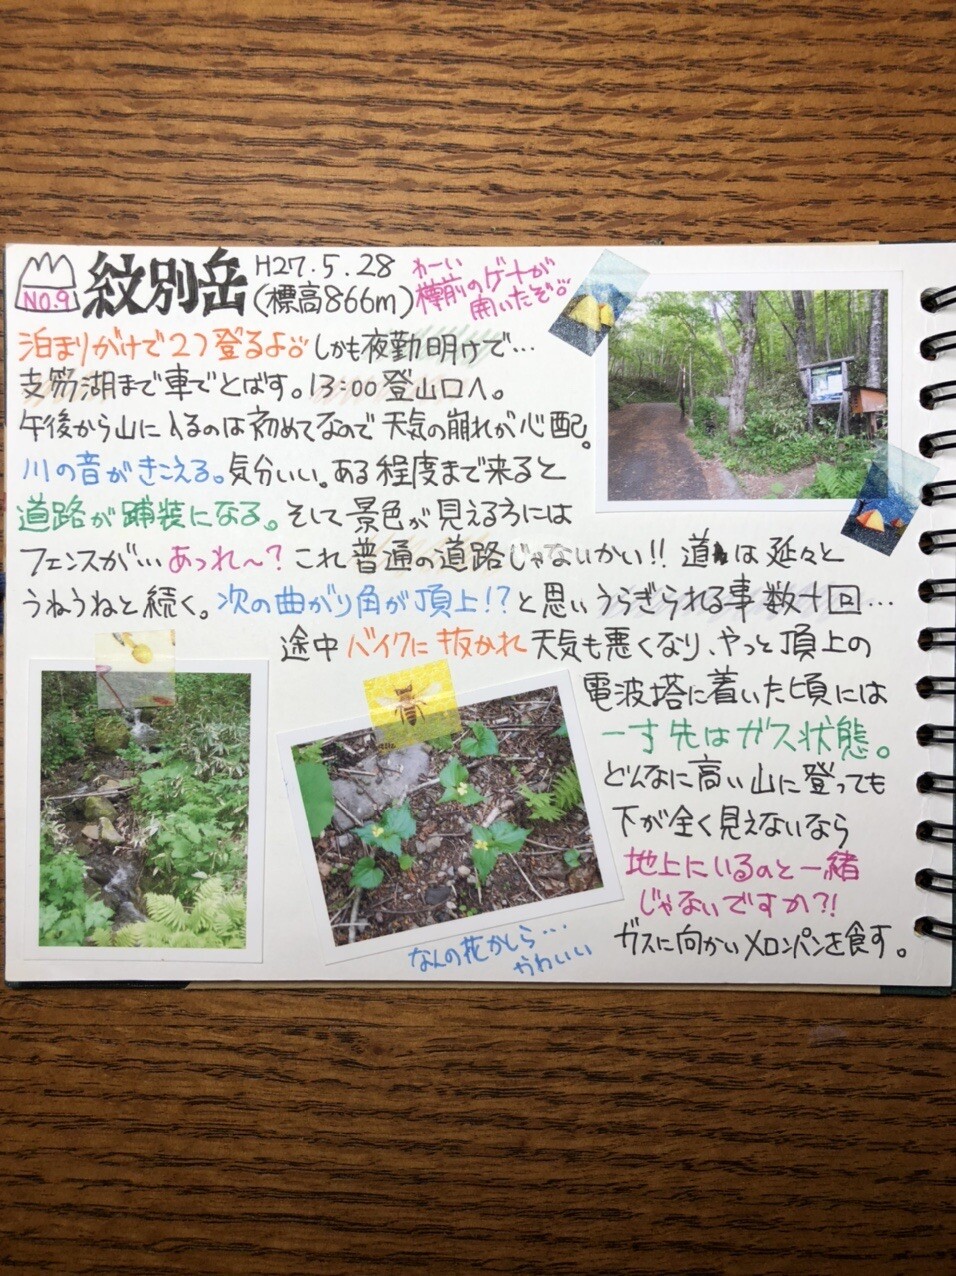 NO.9
紋別岳
H27.5.28
(標高866m)
わーい
樽前のゲートが
開いたぞ♪
泊まりがけで2つ登るよ♪しかも夜勤明けで…
支笏湖まで車でとばす。13:00登山口へ。
午後から山に入るのは初めてなので天気の崩れが心配。
川の音がきこえる。気分いい。ある程度まで来ると
道路が舗装になる。そして景色が見えるころには
フェンスが…あっれ～?これ普通の道路じゃないかい!!道は延々と
うねうねと続く。次の曲がり角が頂上!?と思いうらぎられる事数十回…
途中バイクに抜かれ天気も悪くなり、やっと頂上の
電波塔に着いた頃には
一寸先はガス状態。
どんなに高い山に登っても
下が全く見えないなら
地上にいるのと一緒
じゃないですか?!
ガスに向かいメロンパンを食す。
なんの花かしら…
かわいい